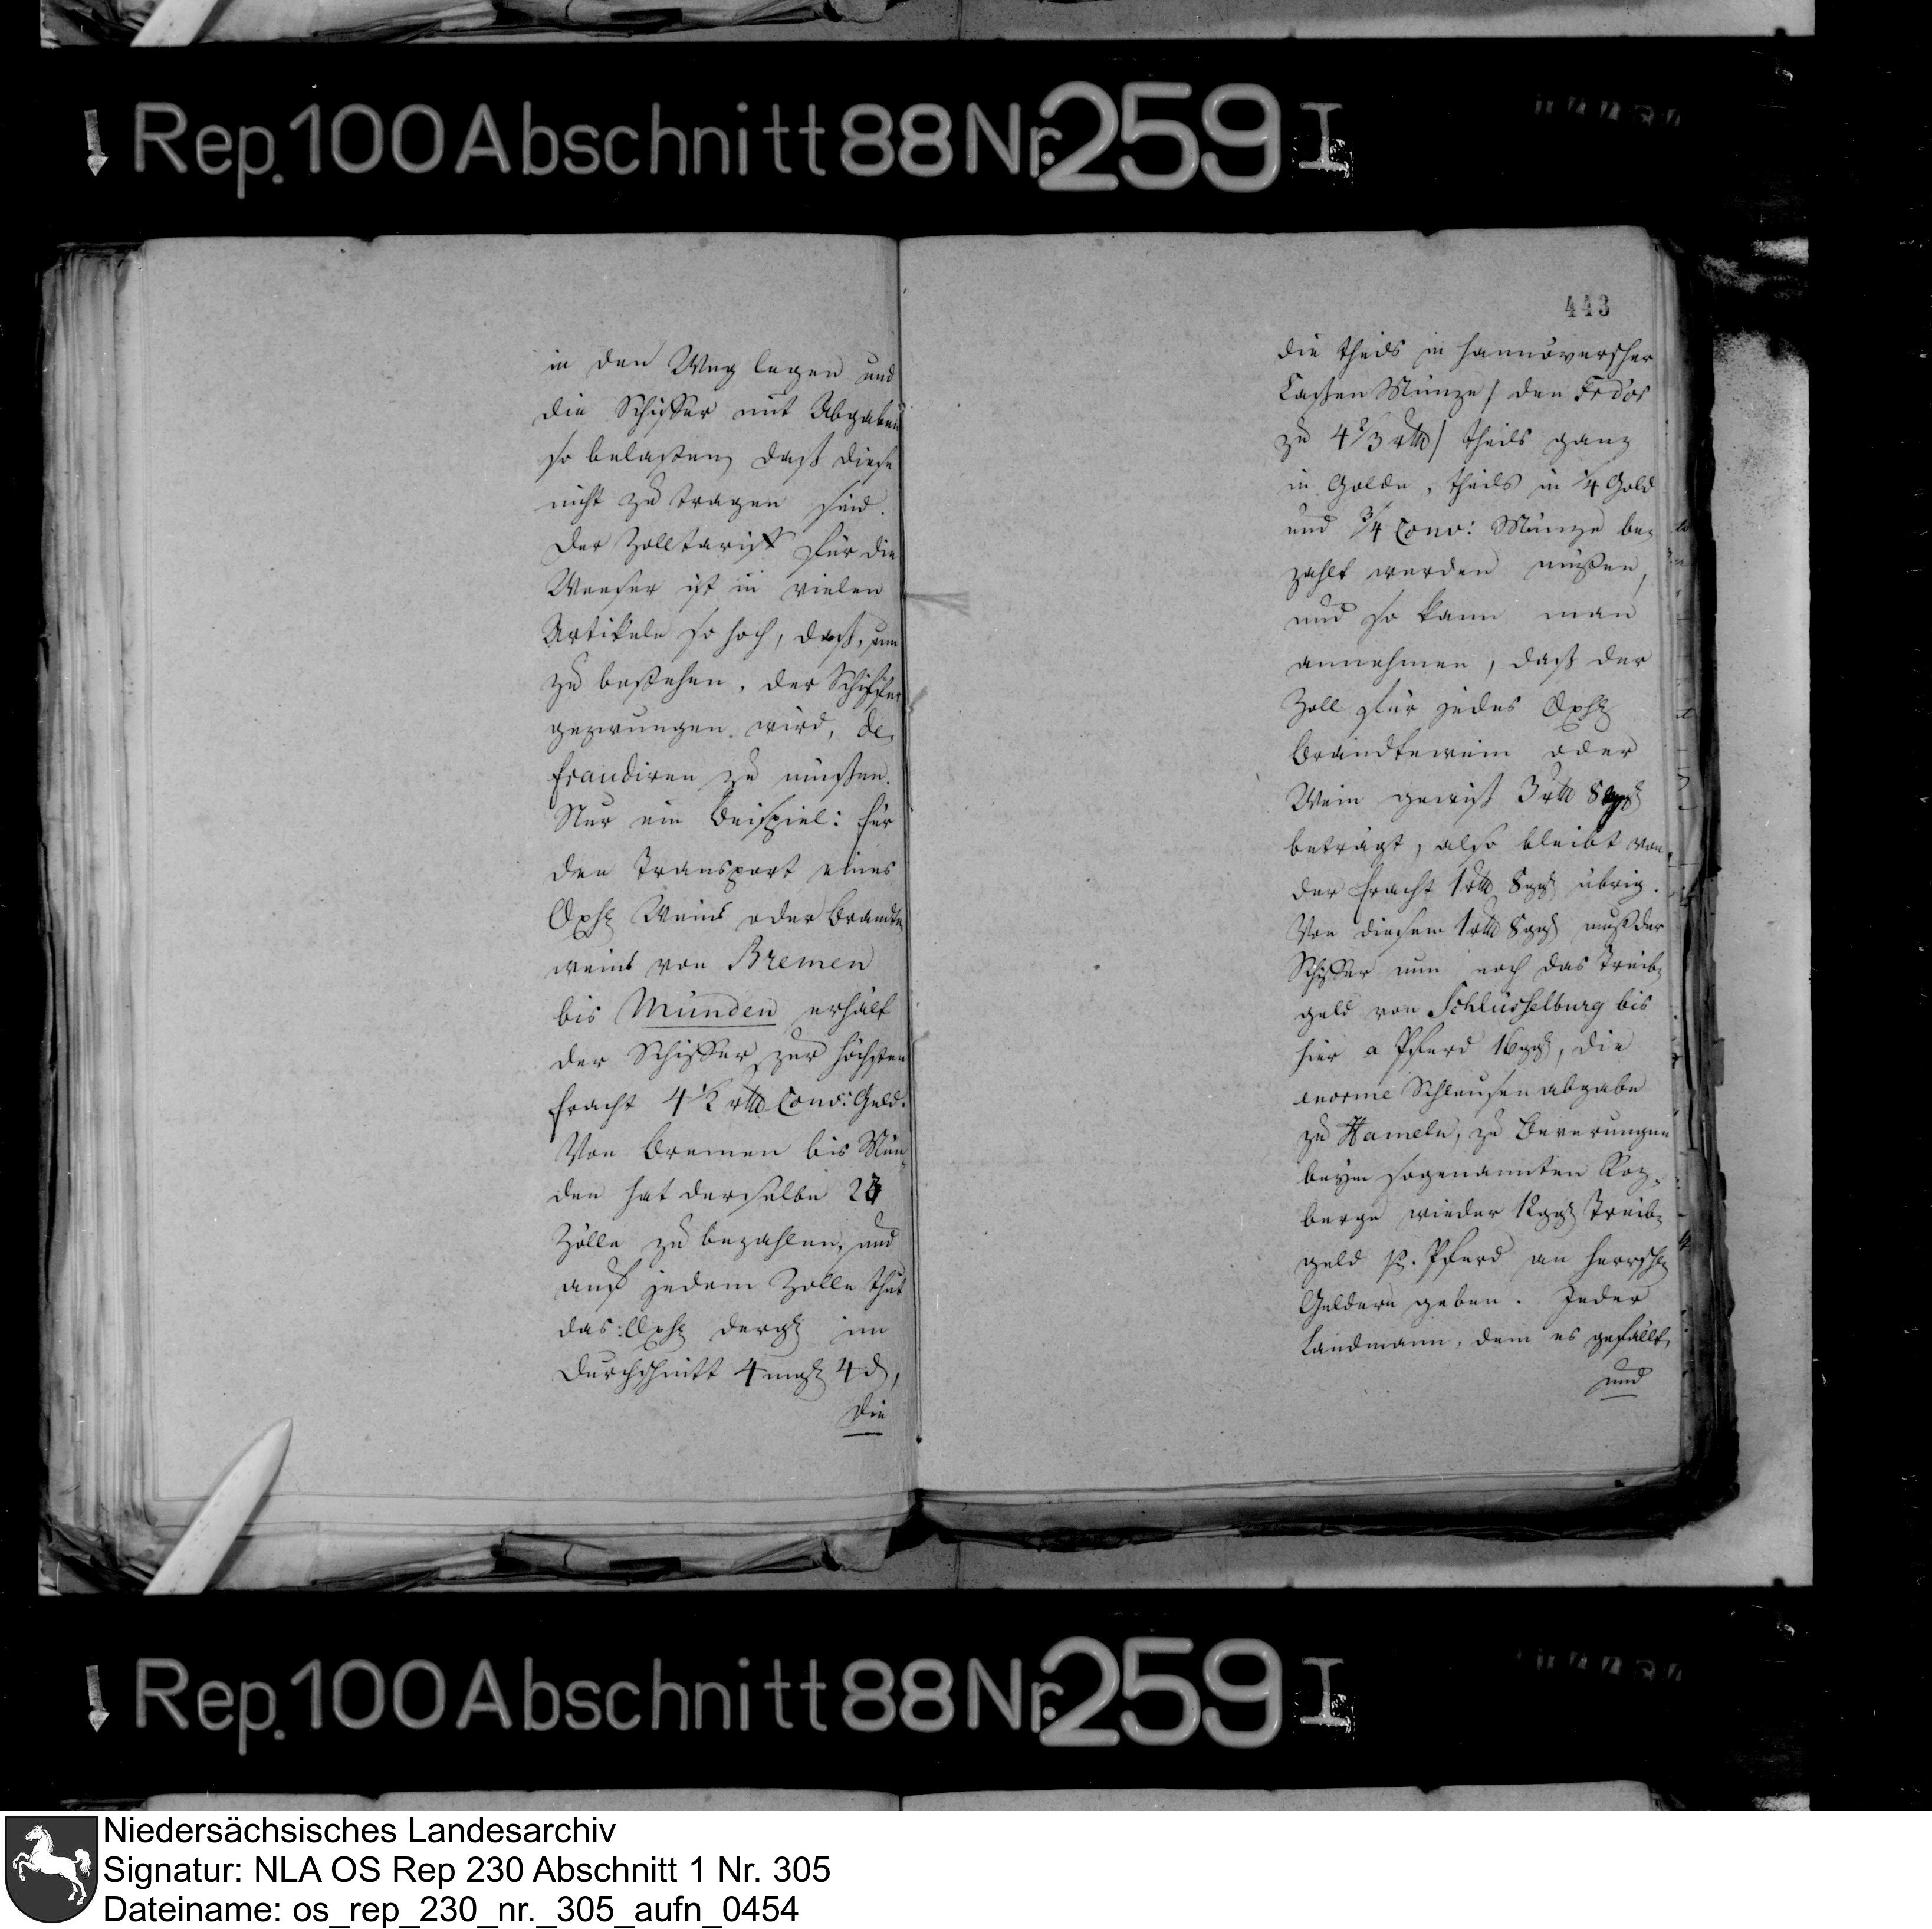 Rep. 100 Abschnitt 88 Nr. 259 I
in den Weg legen und
die Schiffer mit Abgaben
so belasten, daß diese
nicht zu tragen sind.
Der Zolltariff für die
Weeser ist in vielen
Artikeln so hoch, daß, um
zu bestehen, der Schiffer
gezwungen wird, de-
fraudiren zu müßen.
Nur ein Beispiel: für
den Transport eines
Oxh. Weins oder Brandte-
weins von Bremen
bis Münden erhält
der Schiffer zur höchsten
Fracht 4 1/2 rthl Conv: Geld.
Von Bremen bis Mün-
den hat derselbe 23
Zölle zu bezahlen, und
auf jedem Zolle thut
das Oxh. dergl. im
Durchschnitt 4 mgl 4 d,
die
443
die theils in hannöverscher
Cassen Münze / den Frdor
zu 4 2/3 rthl / theils ganz
in Golde, theils in 1/4 Gold
und 3/4 Conv: Münze be-
zahlt werden müßen,
und so kann man
annehmen, daß der
Zoll für jedes Oxh.
Brandtewein oder
Wein gewiß 3 rthl 8 ggl
beträgt, also bleibt von
der Fracht 1 rthl 8 ggl übrig.
Von diesem 1 rthl 8 ggl muß der
Schiffer nun noch das Treib-
geld von Schlüsselburg bis
hier a Pferd 16 ggl, die
enorme Schleusenabgabe
zu Hameln, zu Beverungen
beym sogenannten
berge wieder 12 ggl Treib-
geld pr. Pferd an herrschl.
Geldern geben. Jeder
Landmann, dem es gefällt,
und
Rep. 100 Abschnitt 88 Nr. 259 I
Niedersächsisches Landesarchiv
Signatur: NLA OS Rep 230 Abschnitt 1 Nr. 305
Dateiname: os_rep_230_nr._305_aufn_0454